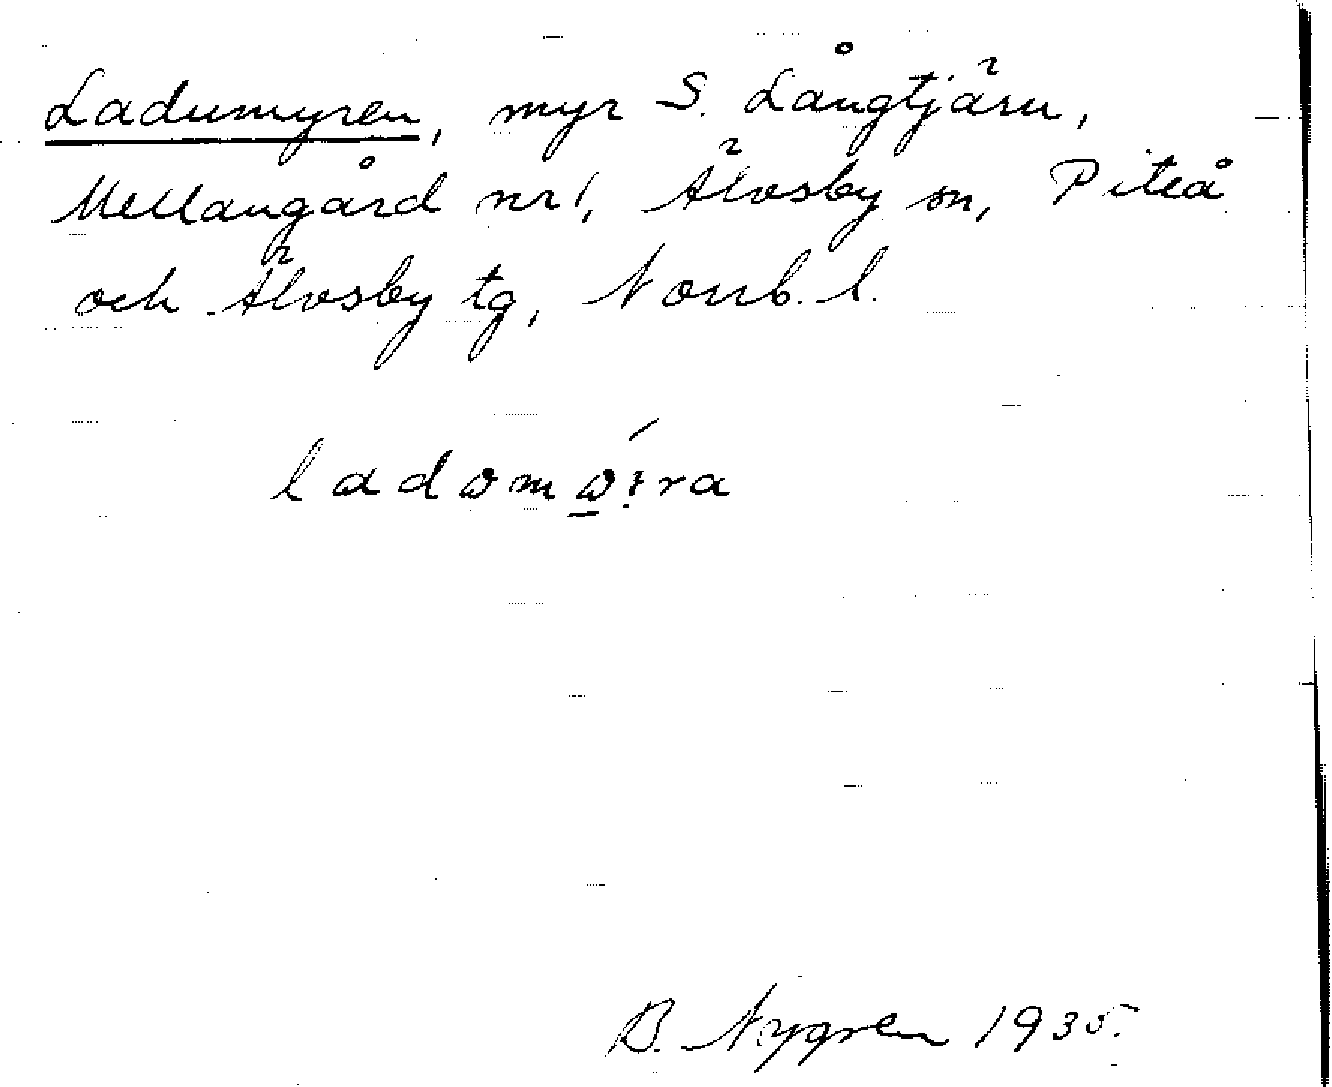 Ladumyren, myr S. Långtjärn,
Mellangård nr 1, Älvsby sn, Piteå
och Älvsby tg, Norrb. l.
B. Nygren 1935.